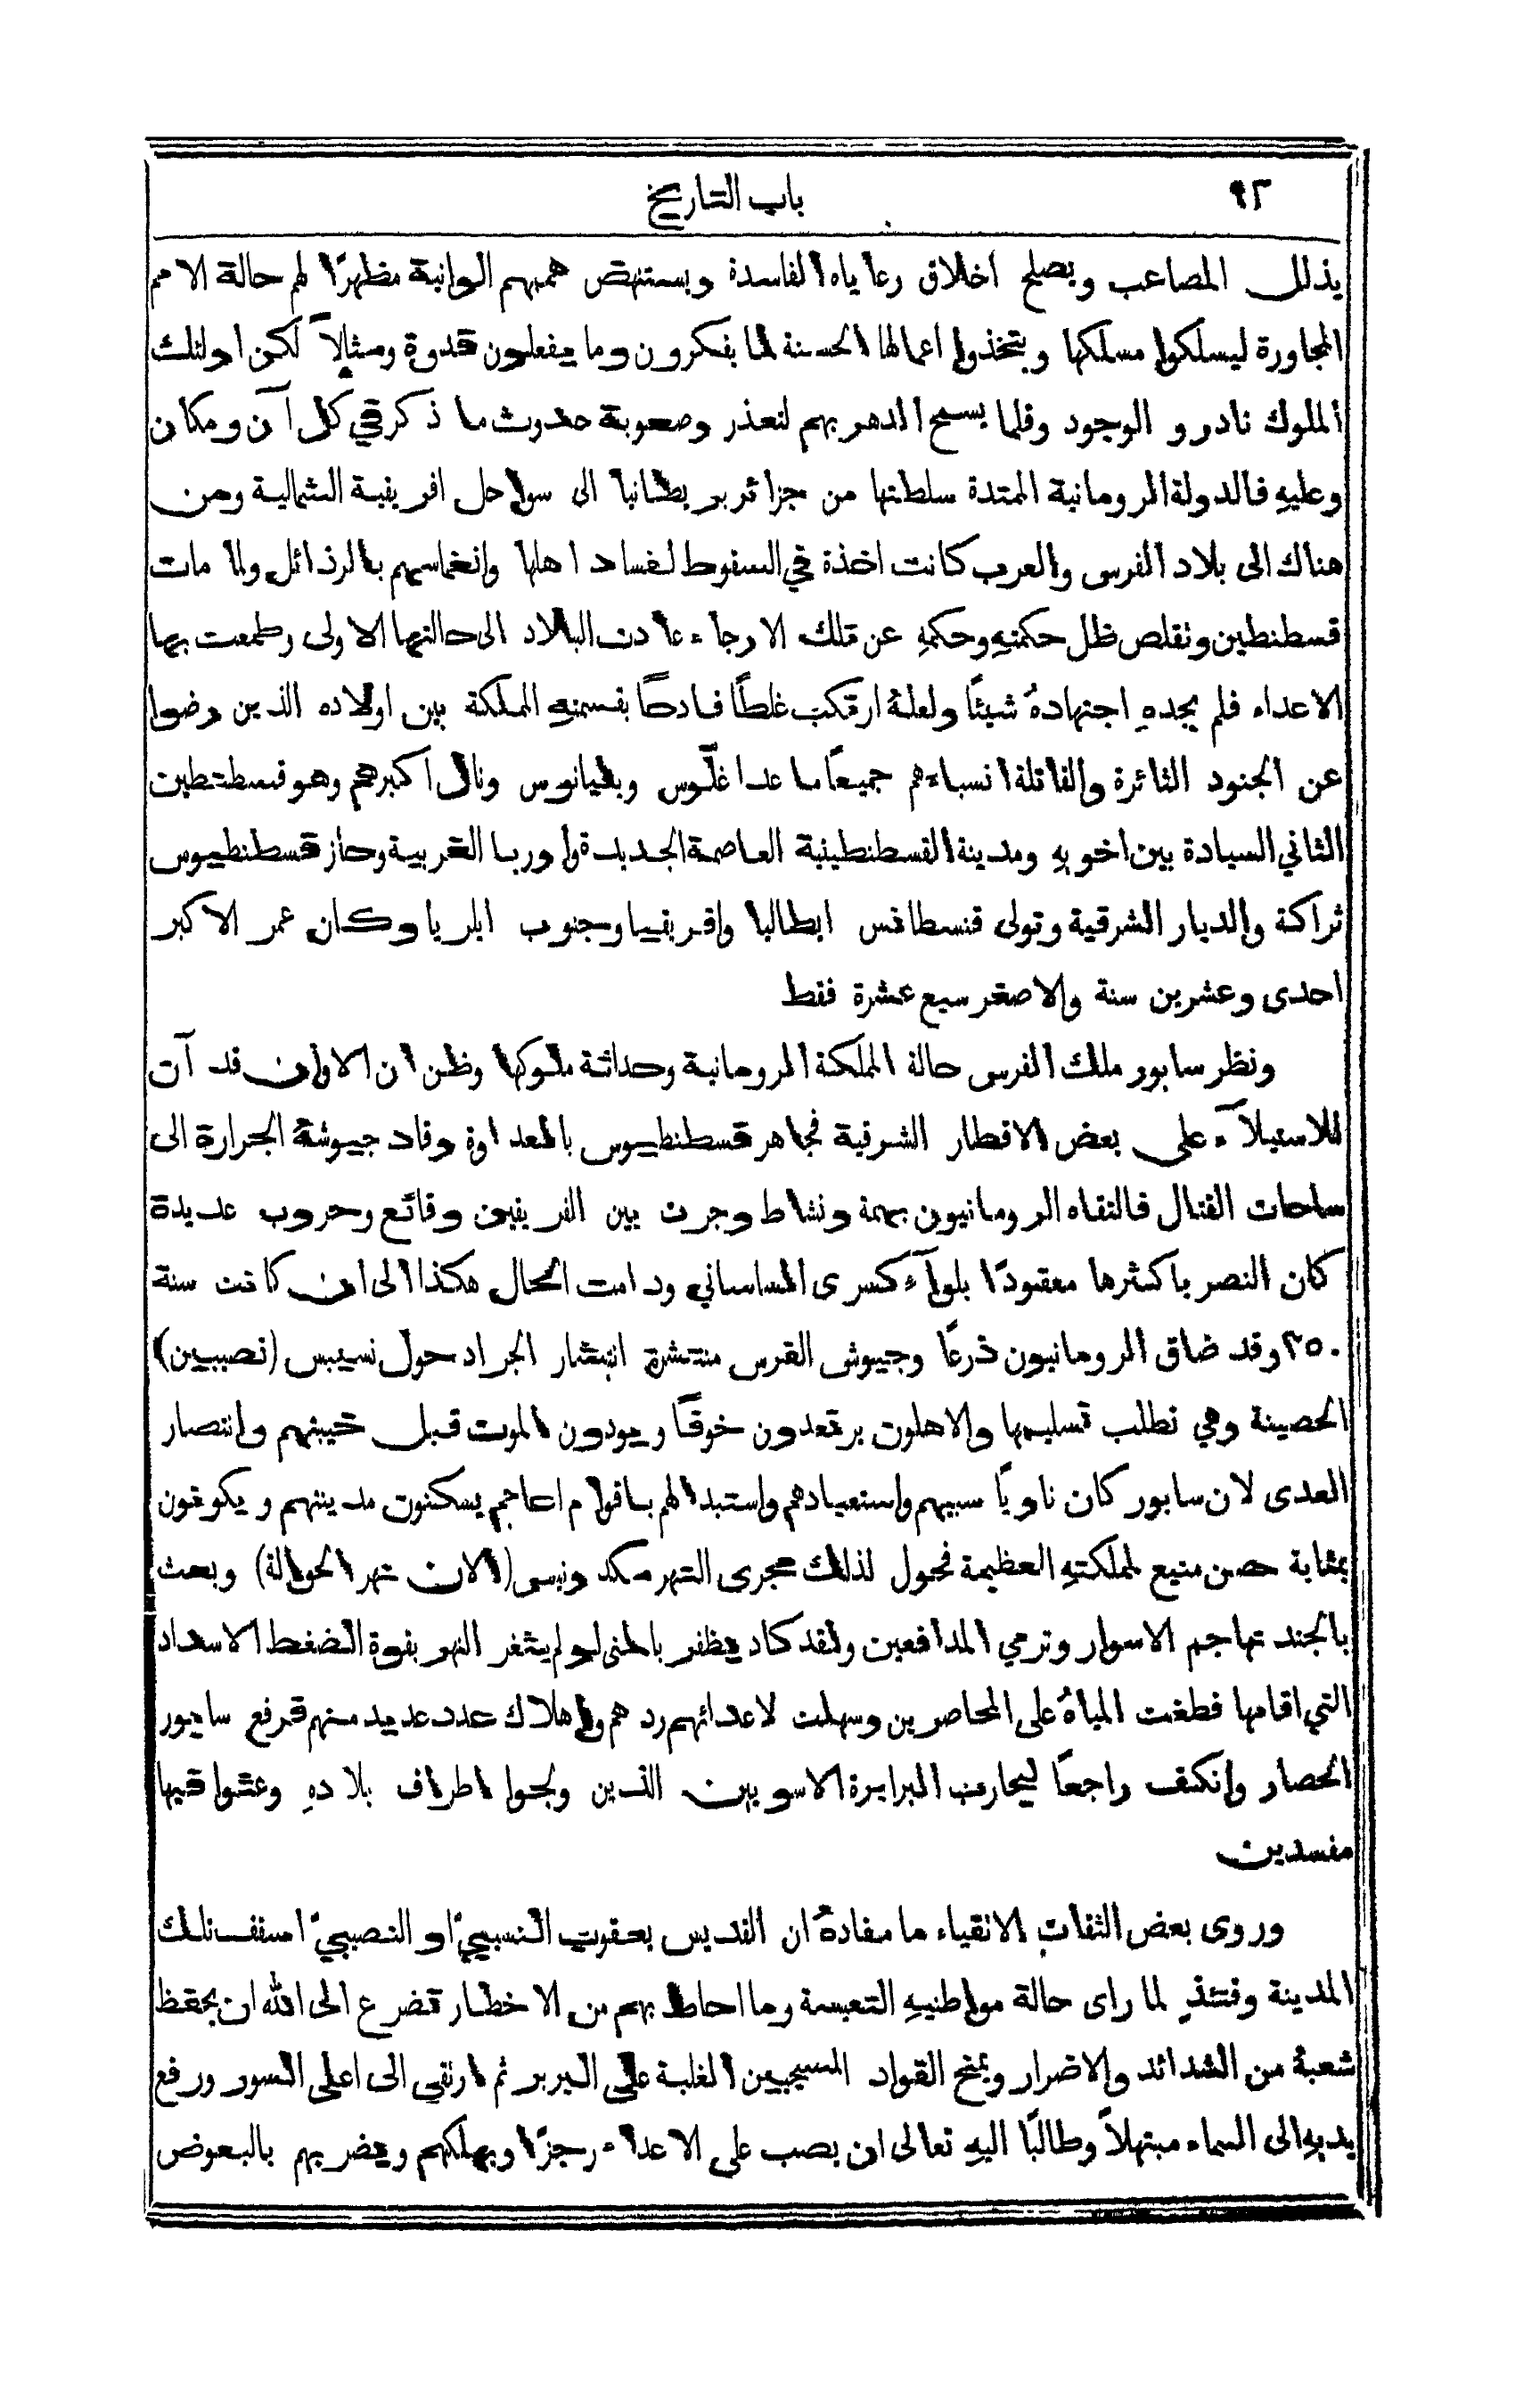 ٩٢ باب التاريخ
يذلل المصاعب ويصلح اخلاق رعاياه الفاسدة ويستنهض هممهم الوانية مظهرًا لهم حالة الامم
المجاورة ليسلكوا مسلكها ويتخذوا اعمالها الحسنة لما يفكرون وما يفعلون قدوة ومثالاً لكن اولئك
الملوك نادرو الوجود وقلما يسمح الدهر بهم لتعذر وصعوبة حدوث ما ذكر في كل آن ومكان
وعليهِ فالدولة الرومانية الممتدة سلطتها من جزائر بريطانيا الى سواحل افريقية الشمالية ومن
هناك الى بلاد الفرس والعرب كانت اخذة في السقوط لفساد اهلها وانغماسهم بالرذائل ولما مات
قسطنطين وتقلص ظل حكمتهِ وحكمهِ عن تلك الارجاء عادت البلاد الى حالتها الاولى وطمعت بها
الاعداء فلم يجدهِ اجتهادهُ شيئًا ولعلهُ ارتكب غلطًا فادحًا بقسمتهِ المملكة بين اولاده الذين رضوا
عن الجنود الثائرة والقاتلة انسباءهم جميعًا ما عدا غلّوس ويليانوس ونال اكبرهم وهو قسطنطين
الثاني السيادة بين اخويهِ ومدينة القسطنطينية العاصمة الجديدة واوربا الغربية وحاز قسطنطيوس
ثراكة والديار الشرقية وتولى قنسطانس ايطاليا وافريقيا وجنوب ايلريا وكان عمر الاكبر
احدى وعشرين سنة والاصغر سبع عشرة فقط
ونظر سابور ملك الفرس حالة المملكة الرومانية وحداثة ملوكها وظن ان الاوان قد آن
للاستيلآء على بعض الاقطار الشرقية فجاهر قسطنطيوس بالعداوة وقاد جيوشهُ الجرارة الى
ساحات القتال فالتقاه الرومانيون بهمة ونشاط وجرت بين الفريقين وقائع وحروب عديدة
كان النصر باكثرها معقودًا بلوآء كسرى الساساني ودامت الحال هكذا الى ان كانت سنة
٣٥٠ وقد ضاق الرومانيون ذرعًا وجيوش الفرس منتشرة انتشار الجراد حول نسيبس (نصيبين)
الحصينة وهي تطلب تسليمها والاهلون يرتعدون خوفًا ويودون الموت قبل خيبتهم وانتصار
العدى لان سابور كان ناويًا سبيهم واستعبادهم واستبدالهم باقوام اعاجم يسكنون مدينتهم ويكونون
بمثابة حصن منيع لمملكتهِ العظيمة فحول لذلك مجرى النهر مكدونيس (الان نهر الحوالة) وبعث
بالجند تهاجم الاسوار وترمي المدافعين ولقد كاد يظفر بالمنى لو لم يثغر النهر بقوة الضغط الاسداد
التي اقامها فطغت المياهُ على المحاصرين وسهلت لاعدائهم ردهم واهلاك عدد عديد منهم فرفع سابور
الحصار وانكف راجعًا ليحارب البرابرة الاسويين الذين ولجوا اطراف بلادهِ وعثوا فيها
مفسدين
وروى بعض الثقات الاتقياء ما مفادهُ ان القديس يعقوب النسيبيّ او النصيبيّ اسقف تلك
المدينة وقتئذٍ لما راى حالة مواطنيهِ التعيسة وما احاط بهم من الاخطار تضرع الى الله ان يحفظ
شعبهُ من الشدائد والاضرار ويمنح القواد المسيحيين الغلبة على البربر ثم ارتقى الى اعلى السور ورفع
يديهِ الى السماء مبتهلاً وطالبًا اليهِ تعالى ان يصب على الاعداء رجزًا ويهلكهم ويضربهم بالبعوض